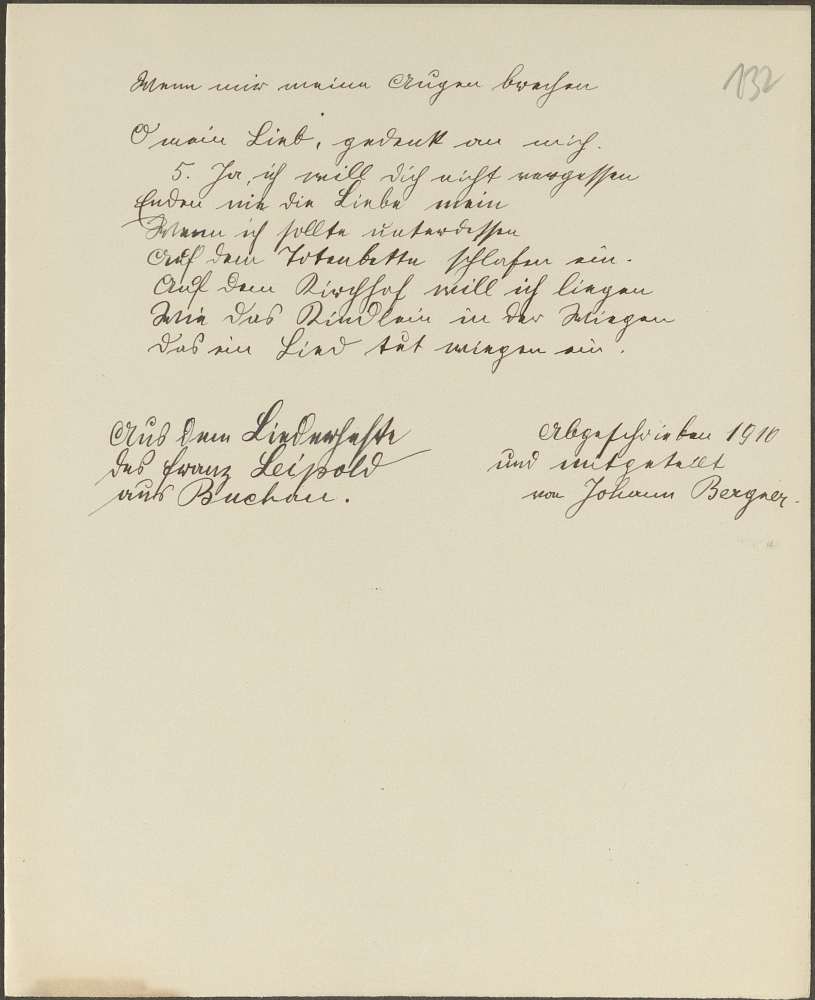 132
Wenn mir meine Augen brechen
O mein Lieb, gedenk an mich.
5. Ja, ich will dich nicht vergessen
Enden nie die Liebe mein
Wenn ich sollte unterdessen
Auf dem Totenbette schlafen ein.
Auf dem Kirchhof will ich liegen
Wie das Kindlein in der Wiegen
Das ein Lied tut wiegen ein.
Aus dem Liederhefte
des Franz Leipold
aus Buchau.
Abgeschrieben 1910
und mitgeteilt
von Johann Bergner.